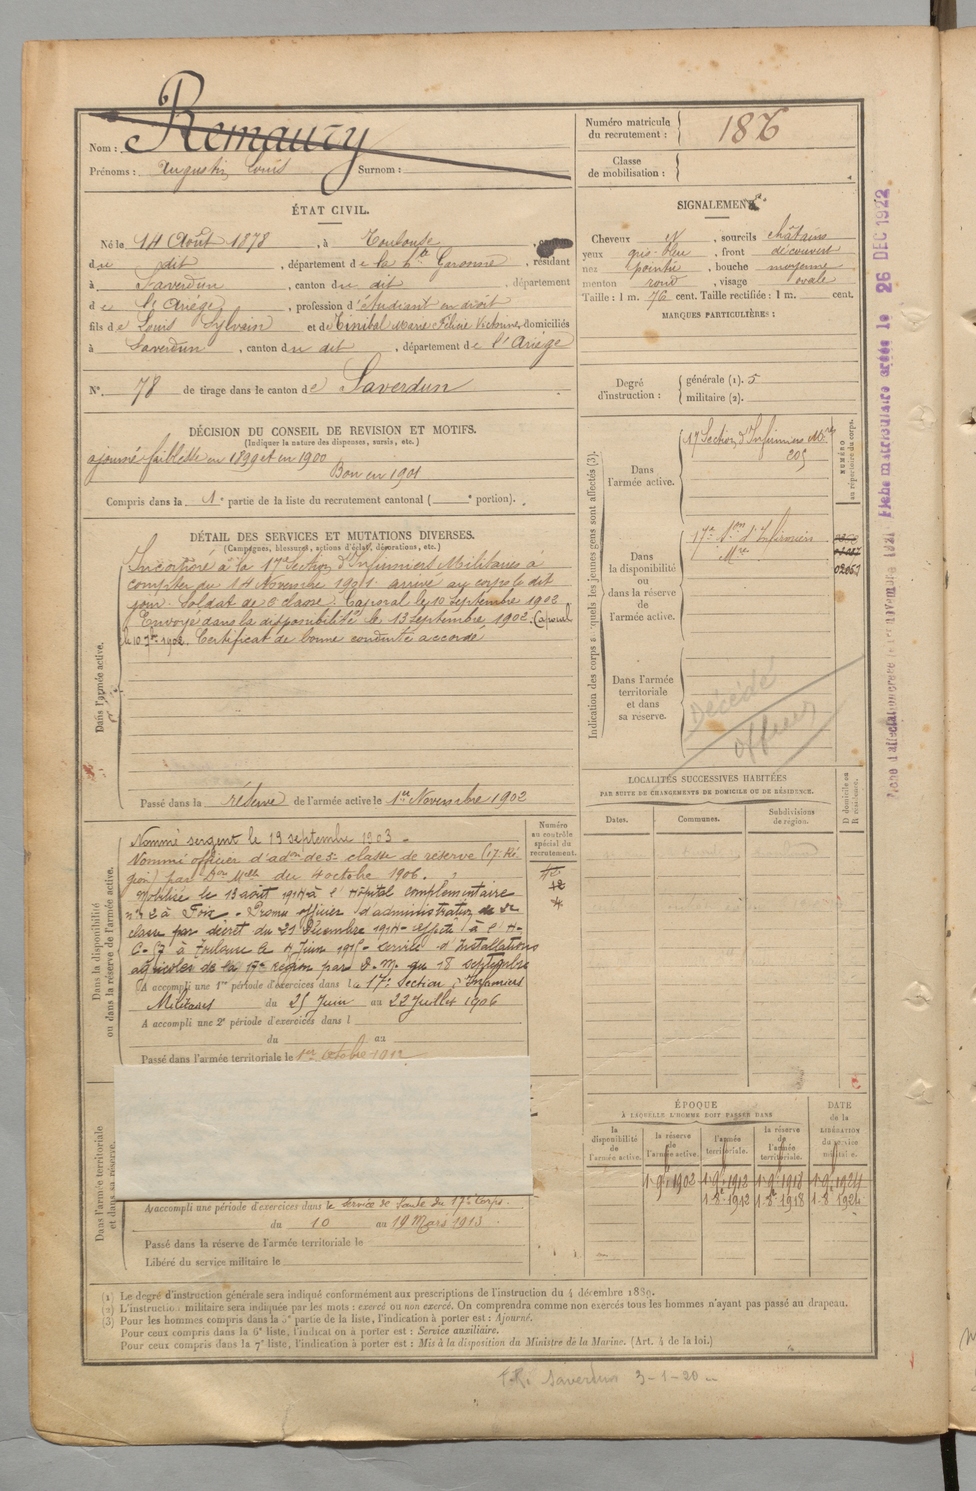 Nom : Remaury
Prénoms : Augustin Louis Surnom :
Numéro matricule du recrutement : 1876
Classe de mobilisation :
ÉTAT CIVIL.
Né le 14 Août 1878, à Toulouse, canton
du dit, département de la Hte Garonne, résidant
à Saverdun, canton du dit, département
de l'Ariége, profession d'étudiant en droit
fils de Louis Sylvain et de Tinibal Marie Féline Victorine, domiciliés
à Saverdun, canton du dit, département de l'Ariége
N°. 78 de tirage dans le canton de Saverdun
SIGNALEMENT.
Cheveux N, sourcils châtains
yeux gris-bleu, front découvert
nez pointu, bouche moyenne
menton rond, visage ovale
Taille : 1 m. 76 cent. Taille rectifiée : 1 m. cent.
MARQUES PARTICULIÈRES :
Degré d'instruction : générale (1). 5
militaire (2).
DÉCISION DU CONSEIL DE REVISION ET MOTIFS.
(Indiquer la nature des dispenses, sursis, etc.)
ajourné faiblesse en 1899 et en 1900
Bon en 1901
Compris dans la 1e partie de la liste du recrutement cantonal ( e portion).
DÉTAIL DES SERVICES ET MUTATIONS DIVERSES.
(Campagnes, blessures, actions d'éclat, décorations, etc.)
Dans l'armée active.
Incorporé à la 17e Section d'Infirmiers Militaires à
compter du 14 Novembre 1901. arrivé au corps le dit
jour. Soldat de 2e classe. Caporal le 10 Septembre 1902
Envoyé dans la disponibilité le 13 Septembre 1902. (Caporal
le 10 7bre 1902. Certificat de bonne conduite accordé
Passé dans la réserve de l'armée active le 1er Novembre 1902
Indication des corps auxquels les jeunes gens sont affectés (3).
NUMÉRO au répertoire du corps.
Dans l'armée active.
17 Section d'Infirmiers Mres
205
Dans la disponibilité ou dans la réserve de l'armée active.
17e Son d'Infirmiers
Mres
Dans l'armée territoriale et dans sa réserve.
Décédé
officier
Fiche matriculaire créée le 26 DEC 1922
LOCALITÉS SUCCESSIVES HABITÉES
PAR SUITE DE CHANGEMENTS DE DOMICILE OU DE RÉSIDENCE.
Dates. Communes. Subdivisions de région. D domicile ou R résidence.
Dans la disponibilité ou dans la réserve de l'armée active.
Numéro au contrôle spécial du recrutement.
Nommé sergent le 19 septembre 1903.
Nommé officier d'adon de 3e classe de réserve (17e Ré
gion) par Don Mlle du 4 octobre 1906.
Mobilisé le 13 août 1914 à l'Hôpital complémentaire
n° 2 à Foix. Promu officier d'administration de 2e
classe par décret du 21 Décembre 1914. affecté à l'H-
C- 17 à Toulouse le 4 Juin 1915. Service d'Installations
agricoles de la 17e région par D. M. du 18 septembre
A accompli une 1re période d'exercices dans la 17e Section d'Infirmiers
Militaires du 25 Juin au 22 Juillet 1906
A accompli une 2e période d'exercices dans l
du au
Passé dans l'armée territoriale le 1er Octobre 1912
Dans l'armée territoriale et dans sa réserve.
A accompli une période d'exercices dans le Service de Santé du 17e Corps
du 10 au 19 Mars 1913.
Passé dans la réserve de l'armée territoriale le
Libéré du service militaire le
ÉPOQUE
À LAQUELLE L'HOMME DOIT PASSER DANS
DATE de la LIBÉRATION du service militaire.
la disponibilité de l'armée active. la réserve de l'armée active. l'armée territoriale. la réserve de l'armée territoriale.
1-9e-1902 1-9e-1912 1-9e-1918 1-9e-1924
1-8e-1912 1-8e-1918 1-8e-1924
(1) Le degré d'instruction générale sera indiqué conformément aux prescriptions de l'instruction du 4 décembre 1889.
(2) L'instruction militaire sera indiquée par les mots : exercé ou non exercé. On comprendra comme non exercés tous les hommes n'ayant pas passé au drapeau.
(3) Pour les hommes compris dans la 5e partie de la liste, l'indication à porter est : Ajourné.
Pour ceux compris dans la 6e liste, l'indication à porter est : Service auxiliaire.
Pour ceux compris dans la 7e liste, l'indication à porter est : Mis à la disposition du Ministre de la Marine. (Art. 4 de la loi.)
Saverdun 3-1-20